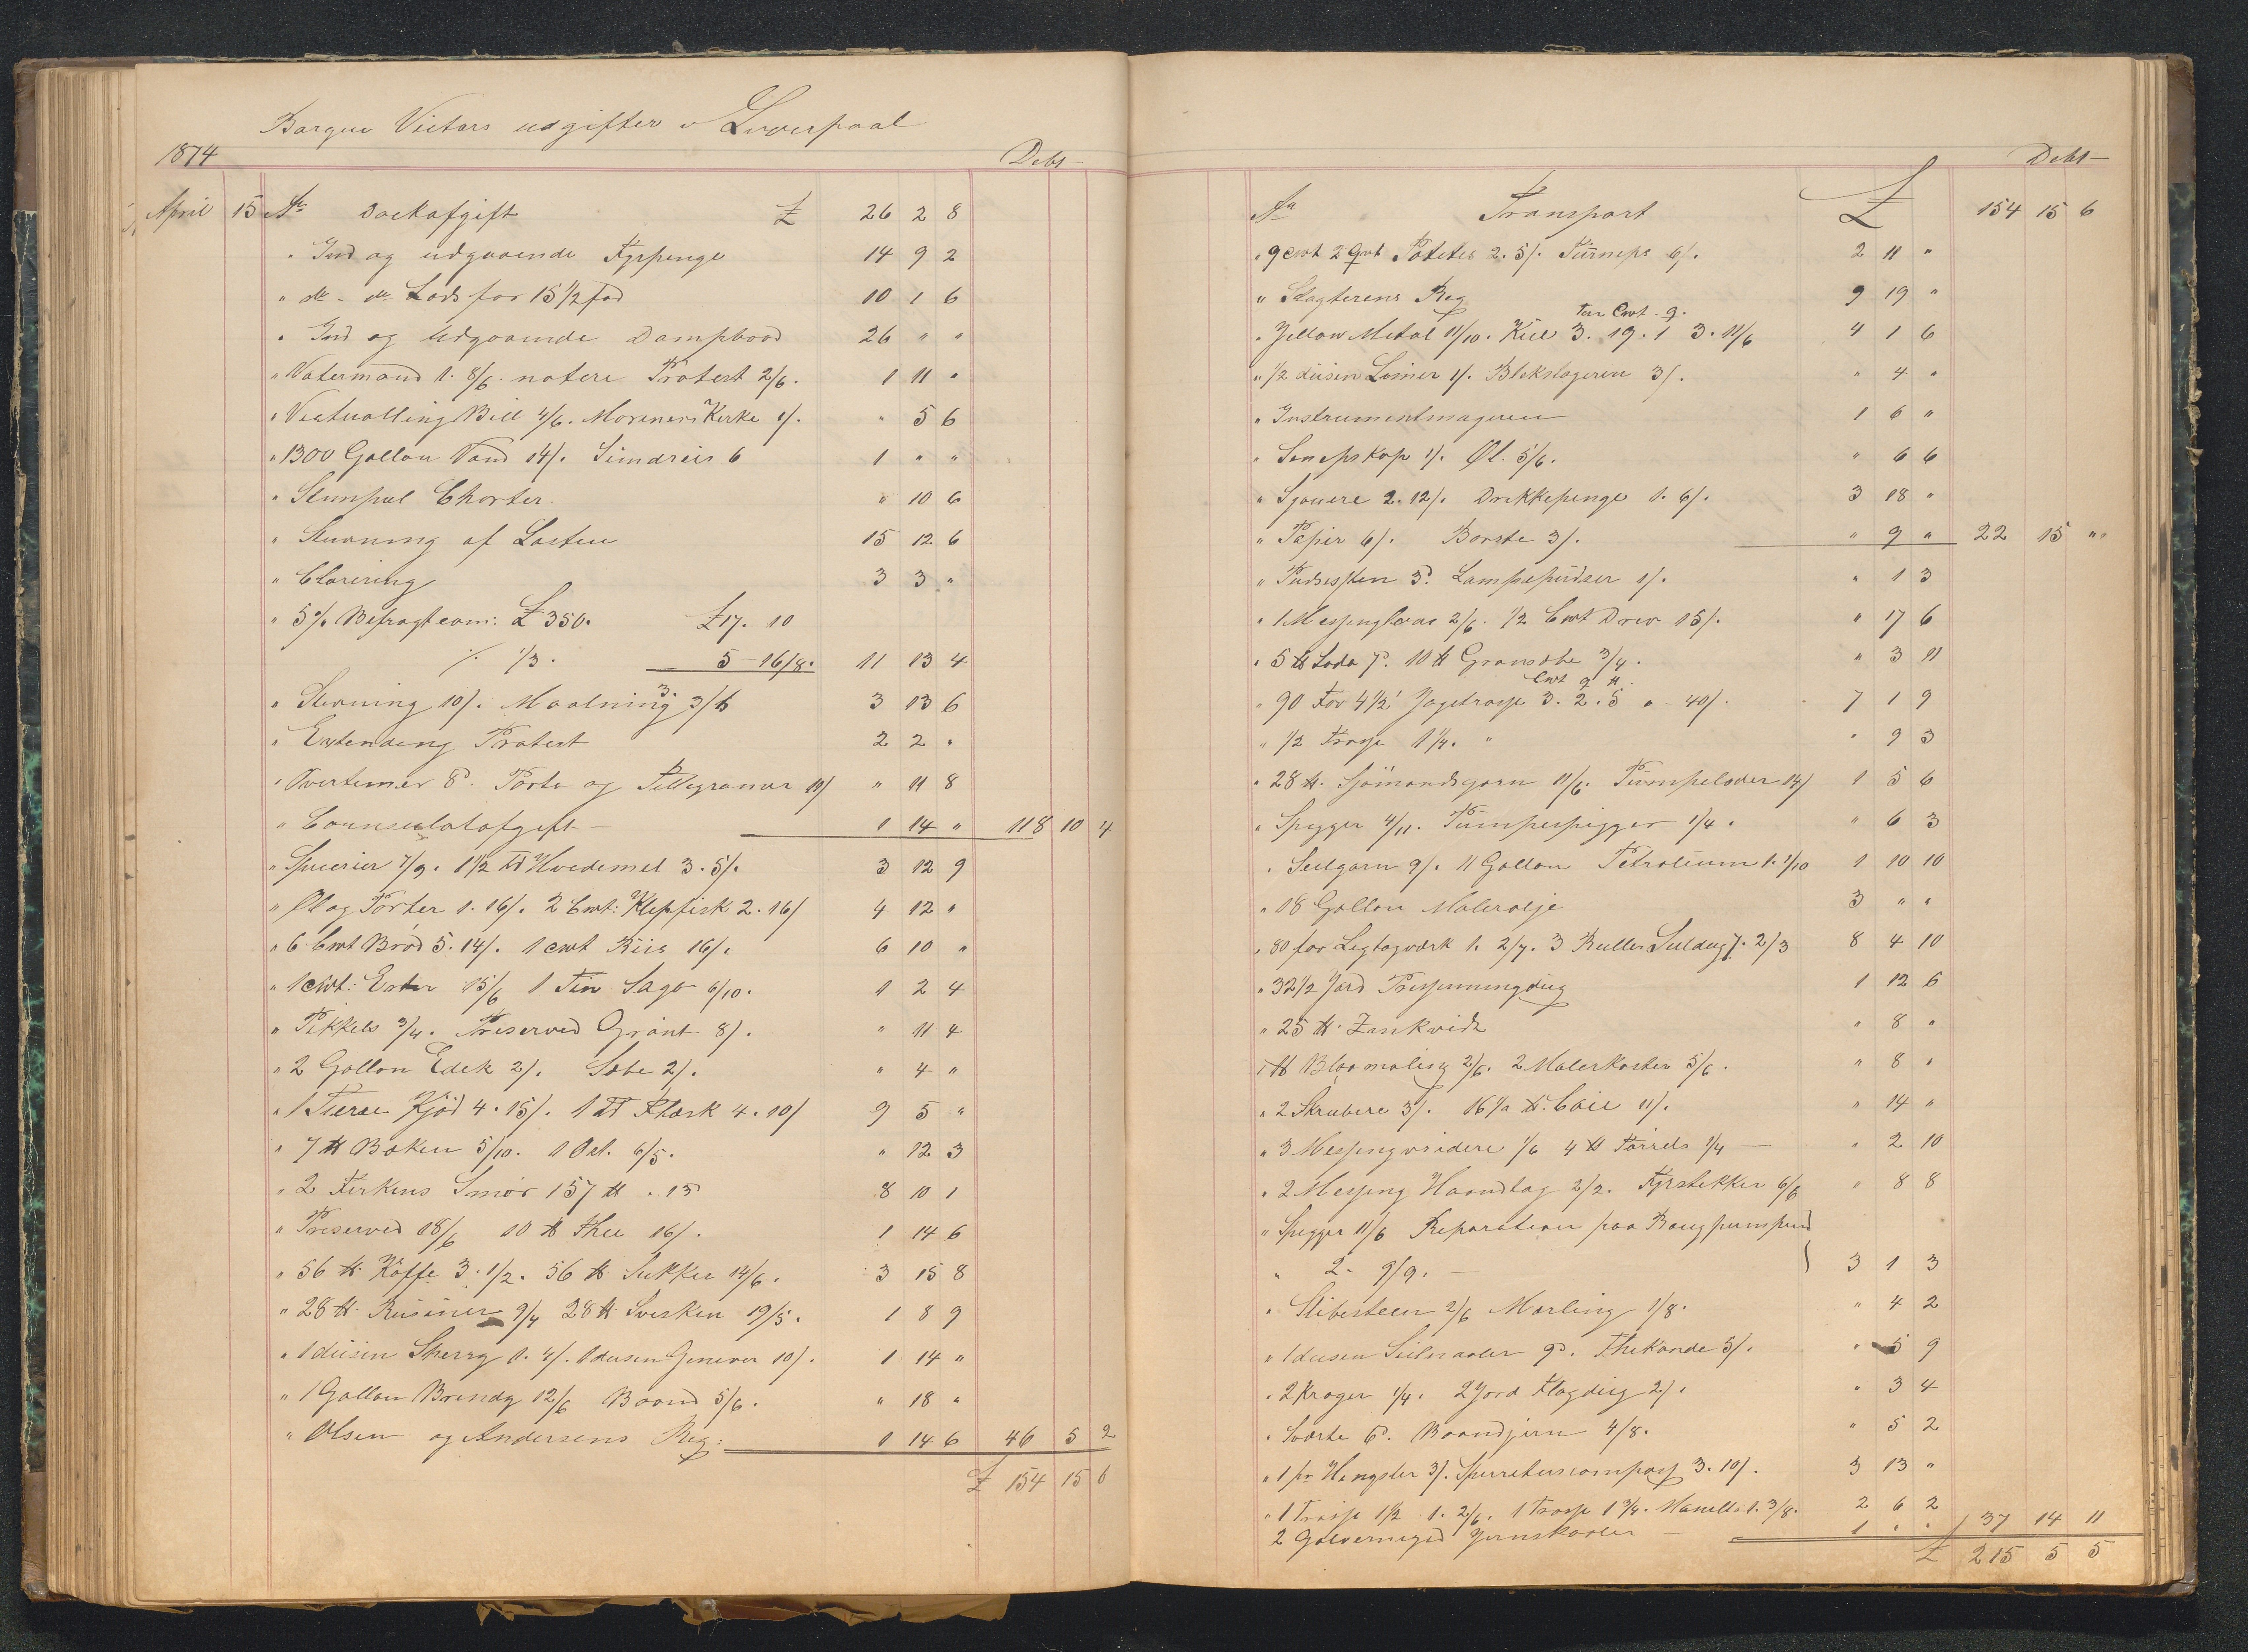 Barque Victors udgifter i Liverpool
1874 Debt
April 15 An Dockafgift £ 26 2 8
" Ind og udgaaende Fyrpenge 14 9 2
" do - do Lods for 15 1/2 fod 10 1 6
" Ind og Udgaaende Dampbaad 26 " "
" Vatermand 1. 8/6. notere Protest 2/6. 1 11 "
" Victualling Bill 4/6. Mariners Kirke 1/. " 5 6
" 1300 Gallon Vand 14/. Sundries 6 1 " "
" Stempel Charter. " 10 6
" Stuvning af Lasten 15 12 6
" Clarering 3 3 "
" 5% Befragtcom: £350. £17. 10
% 1/3. 5-16/8. 11 13 4
" Stuvning 10/. Maalning 3. 3/6 3 13 6
" Extending Protest 2 2 "
" Overtimer 8d. Porto og Tellegramer 11/ " 11 8
" Counsulatafgift - 1 14 " 118 10 4
" Spicerier 7/9. 1 1/2 td Hvedemel 3. 5/. 3 12 9
" Øl og Porter 1. 16/. 2 Cwt: Klepfisk 2. 16/ 4 12 "
" 6 Cwt Brød 5. 14/. 1 cwt Riis 16/. 6 10 "
" 1 cwt: Erter 15/6 1 Tin Sago 6/10. 1 2 4
" Pikkels 3/4. Preserved Grønt 8/. " 11 4
" 2 Gallon Edek 2/. Sæbe 2/. " 4 "
" 1 Tierce Kjød 4. 15/. 1 td Flæsk 4. 10/ 9 5 "
" 7 lb Baken 5/10. 1 Ost. 6/5. " 12 3
" 2 Ferkins Smør 157 lb . 13 8 10 1
" Preserved 18/6 10 lb Thee 16/. 1 14 6
" 56 lb Kaffe 3. 1/2. 56 lb Sukker 14/6. 3 15 8
" 28 lb. Rusiner 9/4 28 lb Svisker 19/5. 1 8 9
" 1 dusin Sherry 1. 4/. 1 dusin Genever 10/. 1 14 "
" 1 Gallon Brendy 12/6 Baand 5/6. " 18 "
" Olsen og Andersens Reg: 1 14 6 46 5 2
£ 154 15 6
Debt
An Transport £ 154 15 6
" 9 cwt 2 Qwt Poteter 2. 5/. Turneps 6/. 2 11 "
" Slagterens Reg 9 19 "
Ton Cwt. q.
" Yellow Metal 11/10. Kul 3. 19. 1 3. 11/6 4 1 6
" 1/2 dusin Limer 1/. Blekslageren 3/. " 4 "
" Instrumentmageren 1 6 "
" Senepskop 1/. Øl. 5/6. " 6 6
" Sjouere 2. 12/. Drikkepenge 1. 6/. 3 18 "
" Papir 6/. Borste 3/. " 9 " 22 15 "
" Pudsesten 3d. Lampepudser 1/. " 1 3
" 1 Messinglaas 2/6. 1/2 Cwt Drev 15/. " 17 6
" 5 lb Soda 7d. 10 lb Grønsæbe 3/4. " 3 11
Cwt q lb
" 90 Fav 4 1/2' Jagetrosse 3. 2. 5 a 40/. 7 1 9
" 1/2 Trosse 1 1/4. " " 9 3
" 28 lb. Sjømandsgarn 11/6. Pumpelæder 14/ 1 5 6
" Spigger 4/11. Pumpespigger 1/4. " 6 3
" Seilgarn 9/. 11 Gallon Petrolium 1. 1/10 1 10 10
" 18 Gallon Malerolje 3 " "
" 80 fav Legtogværk 1. 2/7. 3 Ruller Seildug 7. 2/3 8 4 10
" 32 1/2 Jard Presenningdug 1 12 6
" 25 lb. Zinkvidt " 8 "
" lb Blaamaling 2/6. 2 Malerkoster 5/6. " 8 "
" 2 Skrubere 3/. 16 1/2 lb. Coir 11/. " 14 "
" 3 Messingvridere 1/6 4 lb Tørrels 1/4 - " 2 10
" 2 Messing Haandtag 2/2. Fyrstikker 6/6 " 8 8
" Spigger 11/6 Reparation paa
" 2. 9/9. - 3 1 3
" Slibesteen 2/6 Marling 1/8. " 4 2
" 1 dusin Seilnaaler 9d. Thekande 5/. " 5 9
" 2 Kroger 1/4. 2 Jard Flagdug 2/. " 3 4
" Sværte 6d. Baandjern 4/8. " 5 2
" 1 pr Hengsler 3/. Spirituscompas 3. 10/. 3 13 "
" 1 Trosse 1 1/2 . 1. 2/6. 1 Trosse 1 3/4. Manilla 1. 3/8. 2 6 2
2 Galvernized Jernskaaler - 1 . . 37 14 11
£ 215 5 5